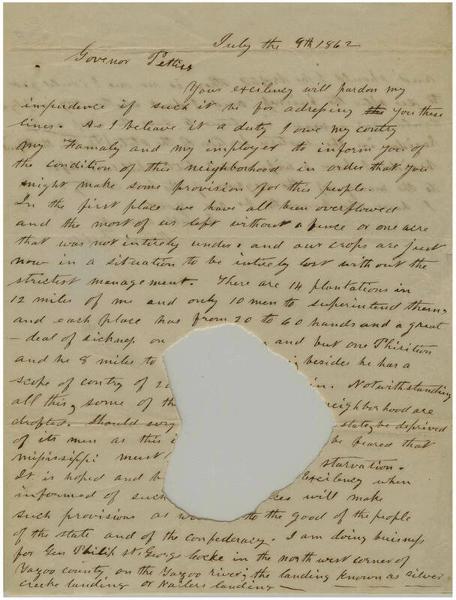 July the 9th 1862
Govenor Pettus
Your excilincy will pardon my
impudence if such it be for adressing you these
lines. As I beleave it a duty I owe my contry
my Famaly and my imployer to inform you of
the condition of this neighborhood in order that you
might make some provision for this people.
In the first place we have all been overflowed
and the most of us left without a fence or one acre
that was not intirely under, and our crops are just
now in a situation to be intirely lost without the
strictest management. There are 14 plantations in
12 miles of me and only 10 men to superintend them,
and each place has from 20 to 60 hands and a great
deal of sickness on and but one Phisition
and he 8 miles to besides he has a
scope of contry of 2 in. Notwithstanding
all this, some of th neighborhood are
drafted. Should evry state, be deprived
of its men as this i be feared that
mississippi must starvation.
It is hoped and b Excilency when
informed of such ces will make
such provisions as w to the good of the people
of the state and of the confederacy. I am doing buisness
for Gen Philip St. George Cocke in the north west corner of
Yazoo county on the Yazoo river, the landing known as Silver
creeke landing or Nailers landing